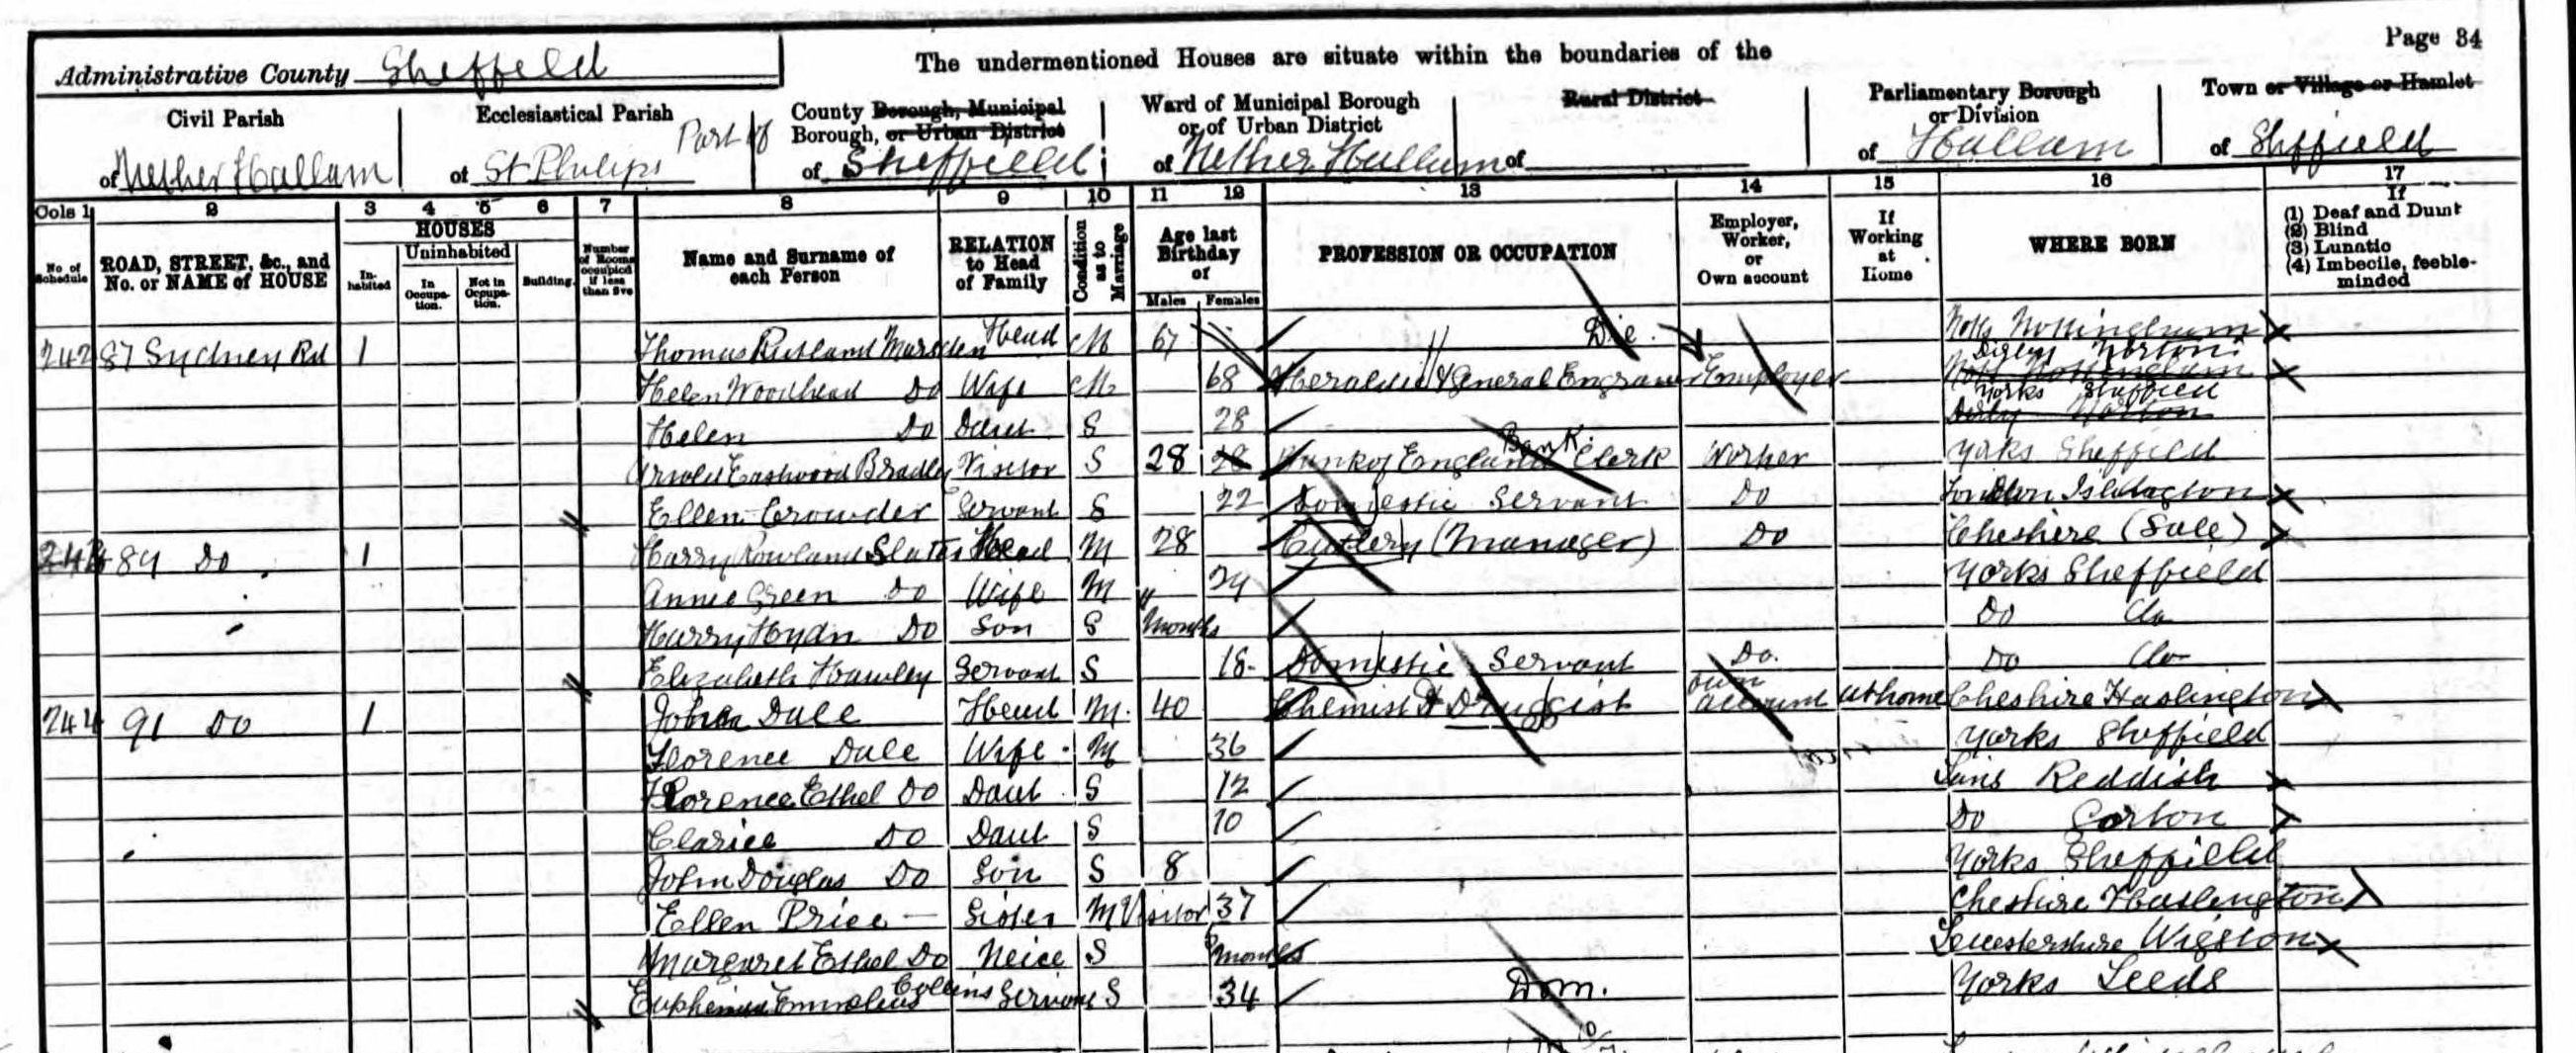 Page 34
Administrative County Sheffield
The undermentioned Houses are situate within the boundaries of the
Civil Parish
of Nether Hallam
Ecclesiastical Parish
Part of
of St Philips
County Borough, Municipal
Borough, or Urban District
of Sheffield
Ward of Municipal Borough
or of Urban District
of Nether Hallam
Rural District
of
Parliamentary Borough
or Division
of Hallam
Town or Village or Hamlet
of Sheffield
Cols 1 2 3 4 5 6 7 8 9 10 11 12 13 14 15 16 17
No. of Schedule
ROAD, STREET, &c., and No. or NAME of HOUSE
HOUSES
In-habited
Uninhabited
In Occupa-tion.
Not in Occupa-tion.
Building.
Number of Rooms occupied if less than five
Name and Surname of each Person
RELATION to Head of Family
Condition as to Marriage
Age last Birthday of
Males Females
PROFESSION OR OCCUPATION
Employer, Worker, or Own account
If Working at Home
WHERE BORN
If
(1) Deaf and Dumb
(2) Blind
(3) Lunatic
(4) Imbecile, feeble-minded
242 87 Sydney Rd 1 Thomas Rutland Marsden Head M 67 Die. Notts Nottingham
Helen Woodhead Do Wife M 68 Heraldic & General Engraver Employer Notts Nottingham Norton
Helen Do Daut S 28 Derby Norton Yorks Sheffield
Arnold Eastwood Bradley Visitor S 28 28 Bank of England Clerk Bank. Worker Yorks Sheffield
Ellen Crowder Servant S 22 Domestic Servant Do London Islington
243 89 Do 1 Harry Rowland Slater Head M 28 Cutlery (Manager) Do Cheshire (Sale)
Annie Green Do Wife M Yorks Sheffield
Harry Do Son S 11 Months Do Do
Elizabeth Hawley Servant S 18 Domestic Servant Do. Do Do
244 91 Do 1 John Dale Head M. 40 Chemist & Druggist Own account at home Cheshire Haslington
Florence Dale Wife M 36 Yorks Sheffield
Florence Ethel Do Daut S 12 Lancs Reddish
Clarice Do Daut S 10 Do Gorton
John Douglas Do Son S 8 Yorks Sheffield
Ellen Price Sister M Visitor 37 Cheshire Haslington
Margaret Ethel Do Neice S months Leicestershire Wigston
Collins Servant S 34 Dom. Yorks Leeds